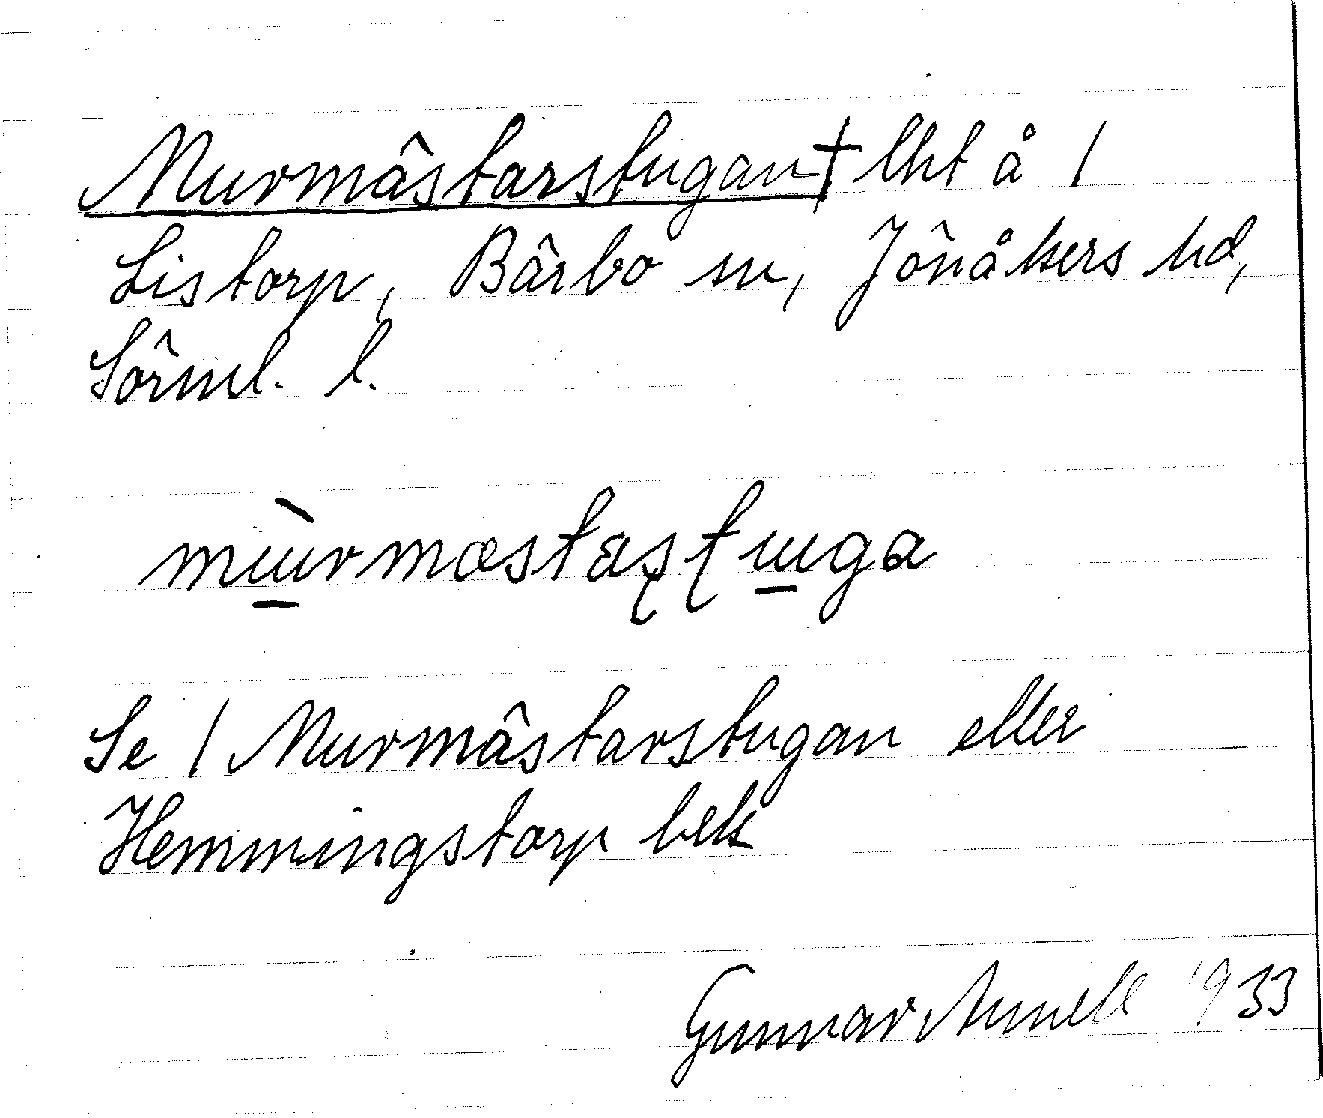 Murmästarstugan † lht å 1
Listorp, Bärbo sn, Jönåkers hd,
Sörml. l.
mɯ̀rmæstaʂʈɯga
Se 1 Murmästarstugan eller
Hemmingstorp bek
Gunnar Annell 1933